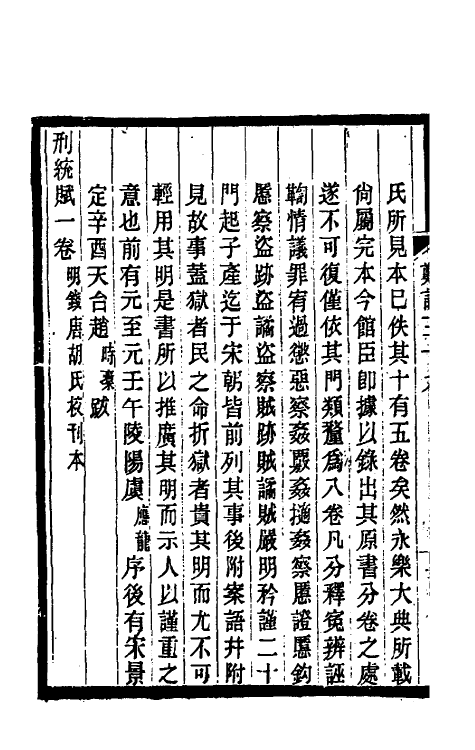 氏所見本已佚其十有五卷矣然永樂大典所載
尙屬完本今館臣卽據以錄出其原書分卷之處
遂不可復僅依其門類釐爲八卷凡分釋寃辨誣
鞫情議罪宥過懲惡察姦覈姦擿姦察慝證慝鉤
慝察盜跡盜譎盜察賊跡賊譎賊嚴明矜謹二十
門起子產迄于宋朝皆前列其事後附案語幷附
見故事蓋獄者民之命折獄者貴其明而尤不可
輕用其明是書所以推廣其明而示人以謹重之
意也前有元至元壬午陵陽虞應龍序後有宋景
定辛酉天台趙時橐跋
刑統賦一卷明錢唐胡氏校刊本